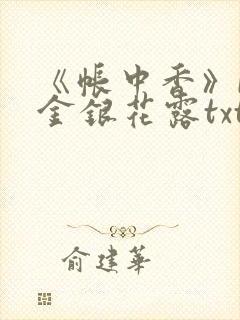 《帐中香》
金银花露txt
俞建华